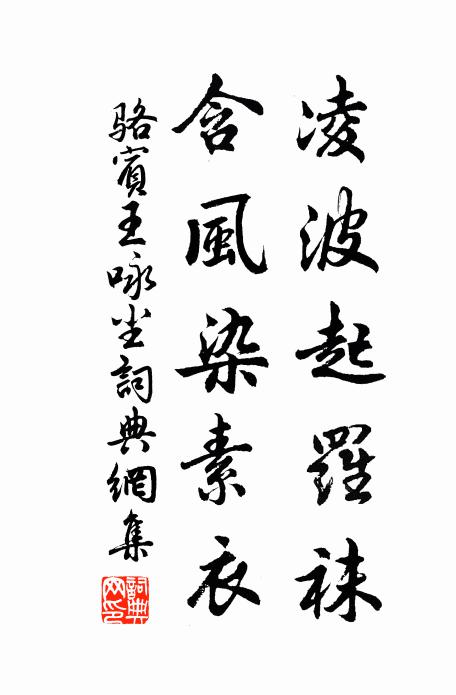 凌波起羅袜
含風染素衣
駱賓王咏尘詞典網集
詞典網印